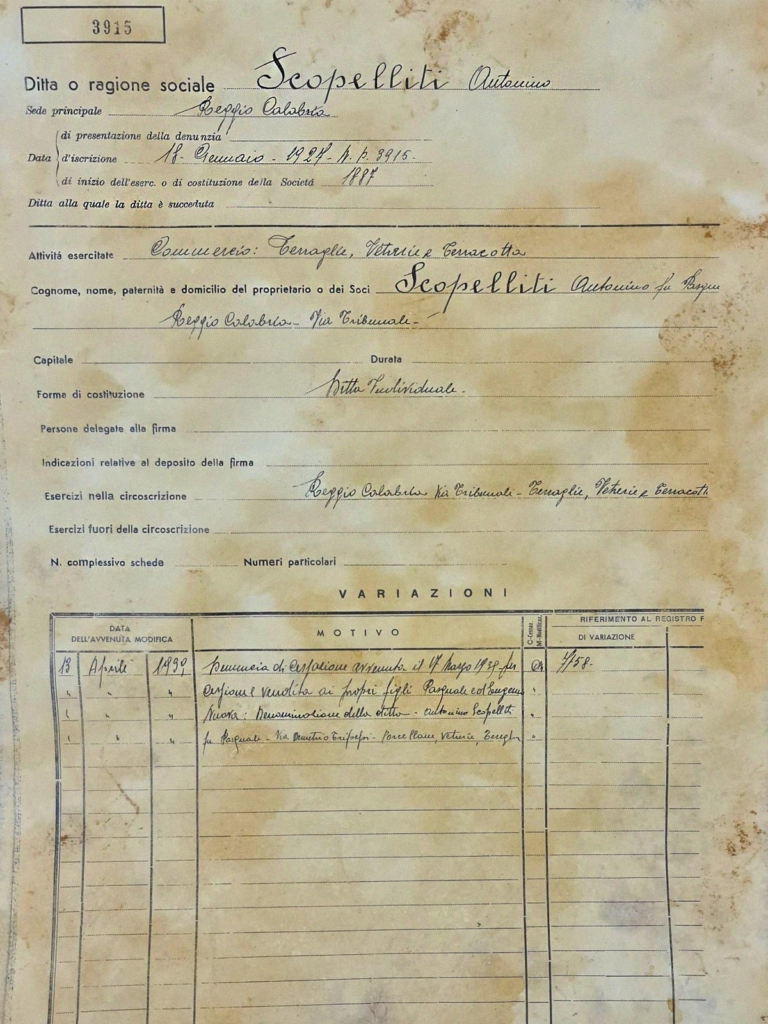 3915
Ditta o ragione sociale Scopelliti Antonino
Sede principale Reggio Calabria
di presentazione della denunzia
Data d'iscrizione 18 Gennaio - 1927 - N. P. 3915.
di inizio dell'eserc. o di costituzione della Società 1887
Ditta alla quale la ditta è succeduta
Attività esercitate Commercio: Terraglie, Vetrerie e Terracotta
Cognome, nome, paternità e domicilio del proprietario o dei Soci Scopelliti Antonino fu Pasqu
Reggio Calabria - Via Tribunale -
Capitale Durata
Forme di costituzione Ditta Individuale.
Persone delegate alla firma
Indicazioni relative al deposito della firma
Esercizi nella circoscrizione Reggio Calabria Via Tribunale - Terraglie, Vetrerie e Terracott
Esercizi fuori della circoscrizione
N. complessivo schede Numeri particolari
VARIAZIONI
DATA DELL'AVVENUTA MODIFICA MOTIVO C-Cessaz. M-Modificaz. RIFERIMENTO AL REGISTRO
DI VARIAZIONE
13 Aprile 1939 Denuncia di cessazione avvenuta il 17 Marzo 1939 per 1758.
" " " cessione e vendita ai propri figli Pasquale ed Eugenio "
" " " Nuova: Denominazione della ditta - Antonino Scopelliti "
" " " fu Pasquale - Via Demetrio Tripepi - Porcellane, Vetrerie, Terragli "